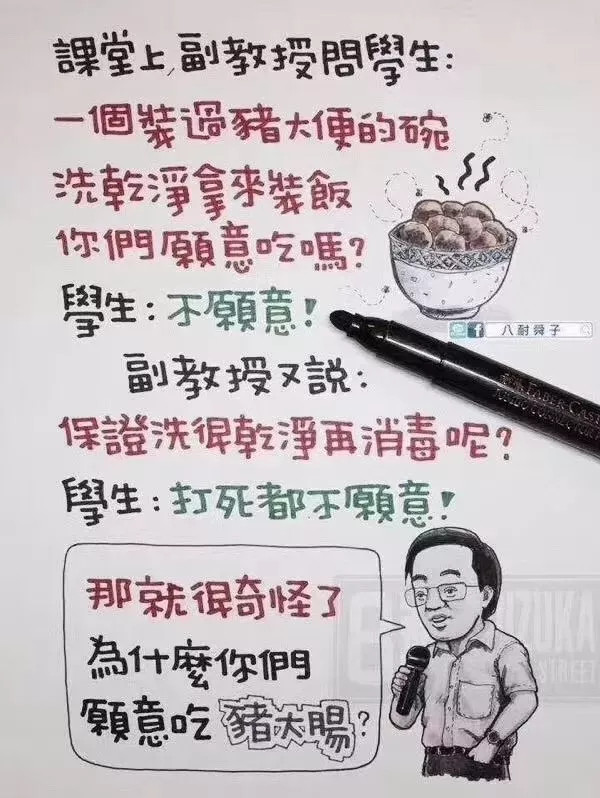 課堂上,副教授問學生:
一個裝過豬大便的碗
洗乾淨拿來裝飯
你們願意吃嗎?
學生:不願意!
八耐舜子
副教授又說:
FABER-CAST
保證洗得乾淨再消毒呢?
學生:打死都不願意!
那就很奇怪了
為什麼你們
願意吃豬大腸?
IZUKA
STREET